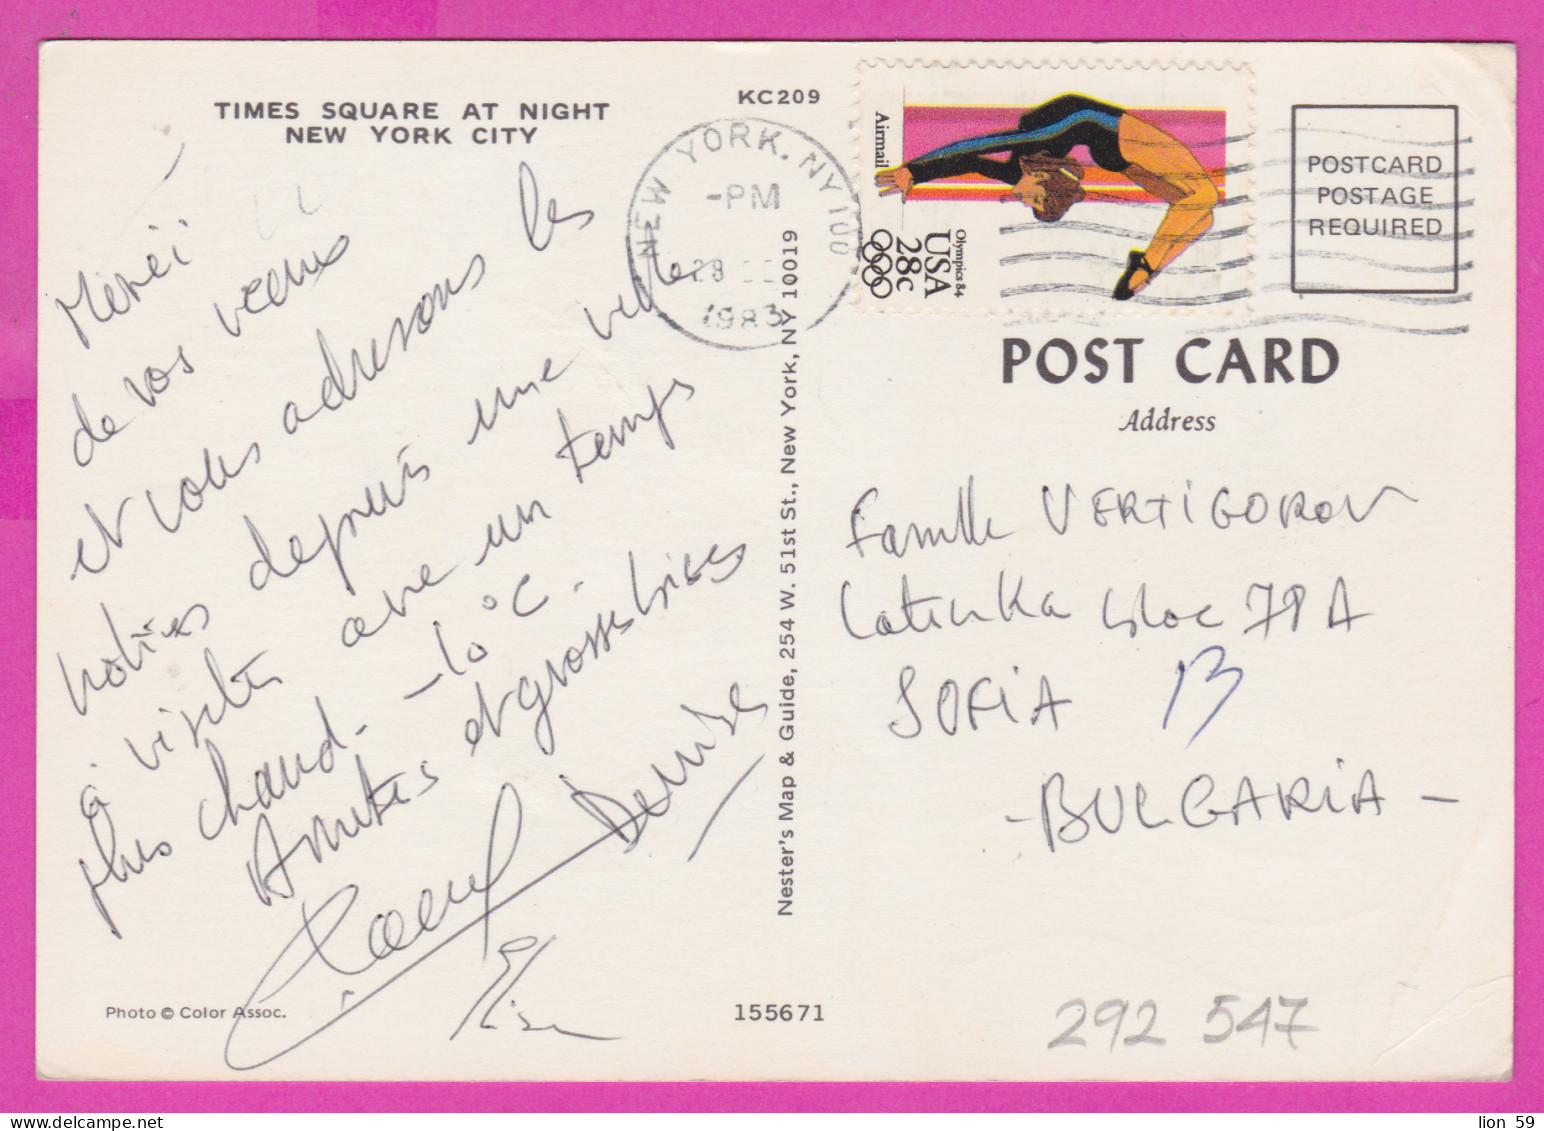 TIMES SQUARE AT NIGHT
NEW YORK CITY
KC209
de vos veaux
et vous adressons les
notres depuis une ville
à visiter avec un temps
plus chaud. -10°C.
Amitiés et grosses bises
Denise
Photo © Color Assoc.
155671
Nester's Map & Guide, 254 W. 51st St., New York, NY 10019
NEW YORK, NY 100
-PM
1983
Airmail
Olympics 84
USA
28c
POSTCARD
POSTAGE
REQUIRED
POST CARD
Address
Famille VERTIGOROV
Latinka bloc 78A
SOFIA
-BULGARIA-
292 547
lion 59